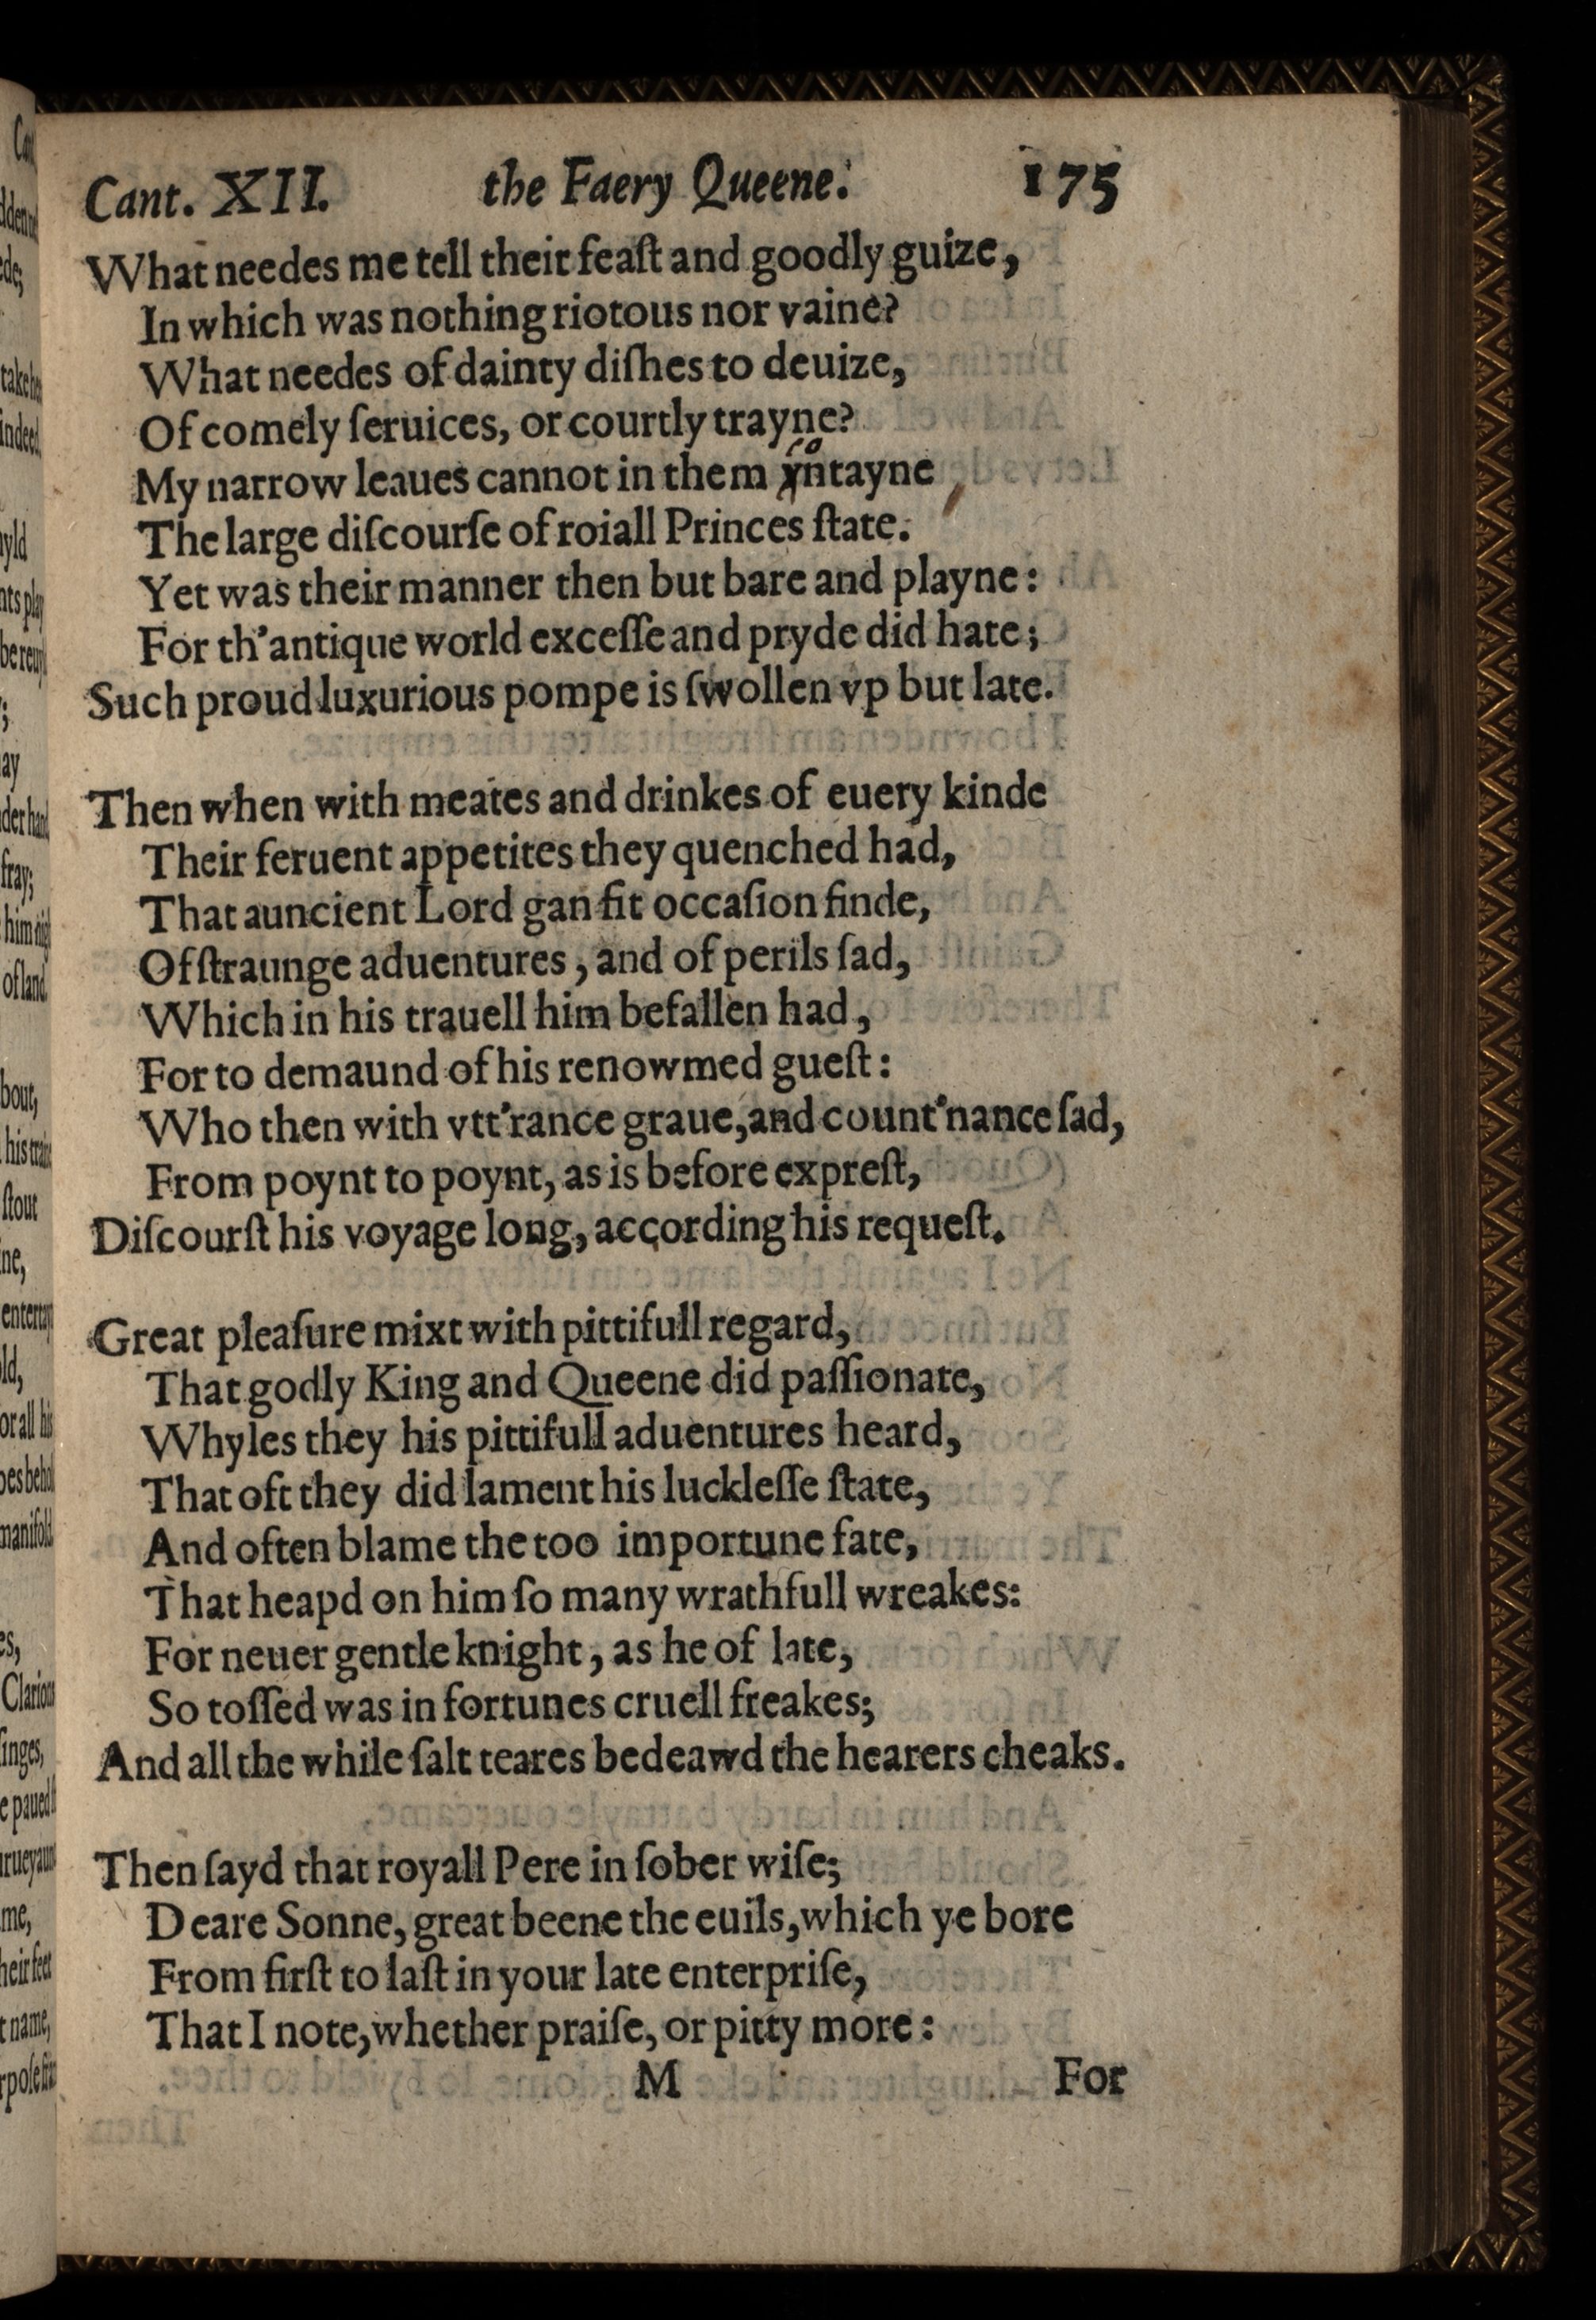 Cant. XII. the Faery Queene. 175
What needes me tell their feaſt and goodly guize,
In which was nothing riotous nor vaine?
What needes of dainty diſhes to deuize,
Of comely ſeruices, or courtly trayne?
co
My narrow leaues cannot in them yntayne
The large diſcourſe of roiall Princes ſtate.
Yet was their manner then but bare and playne:
For th'antique world exceſſe and pryde did hate;
Such proud luxurious pompe is ſwollen vp but late.
Then when with meates and drinkes of euery kinde
Their feruent appetites they quenched had,
That auncient Lord gan fit occaſion finde,
Of ſtraunge aduentures, and of perils ſad,
Which in his trauell him befallen had,
For to demaund of his renowmed gueſt:
Who then with vtt'rance graue, and count'nance ſad,
From poynt to poynt, as is before expreſt,
Diſcourſt his voyage long, according his requeſt.
Great pleaſure mixt with pittifull regard,
That godly King and Queene did paſſionate,
Whyles they his pittifull aduentures heard,
That oft they did lament his luckleſſe ſtate,
And often blame the too importune fate,
That heapd on him ſo many wrathfull wreakes:
For neuer gentle knight, as he of late,
So toſſed was in fortunes cruell freakes;
And all the while ſalt teares bedeawd the hearers cheaks.
Then ſayd that royall Pere in ſober wiſe;
Deare Sonne, great beene the euils, which ye bore
From firſt to laſt in your late enterpriſe,
That I note, whether praiſe, or pitty more:
M For